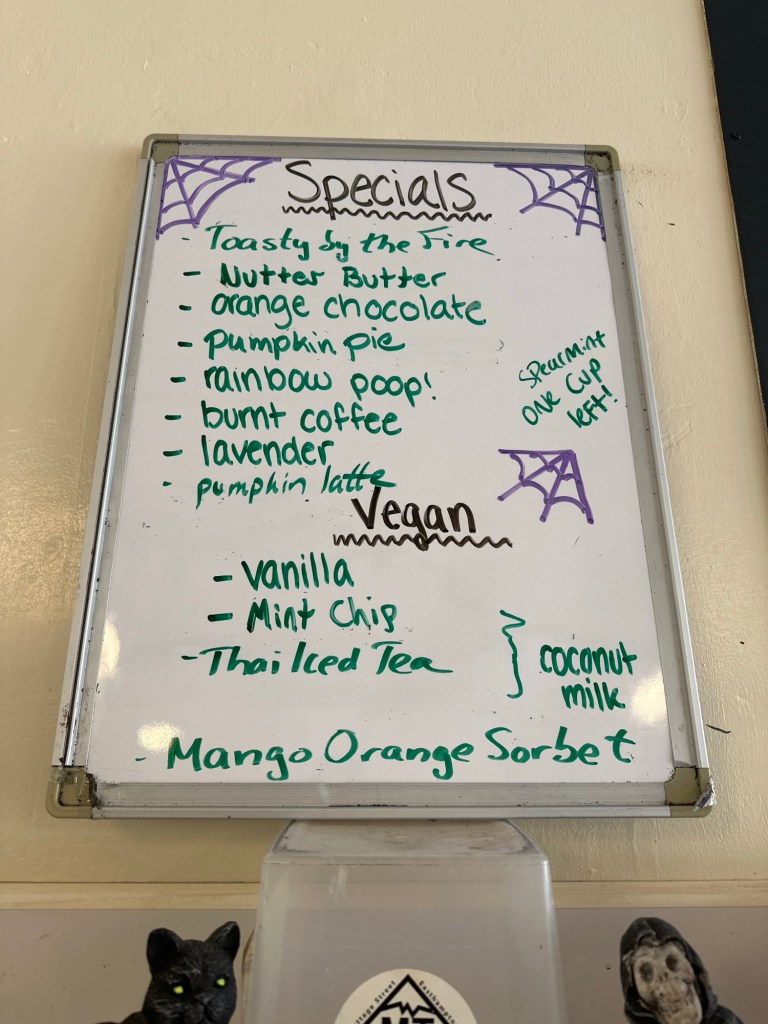 Specials
- Toasty by the Fire
- Nutter Butter
- orange chocolate
- pumpkin pie
- rainbow poop!
- burnt coffee
- lavender
- pumpkin latte
Spearmint
one cup
left!
Vegan
- vanilla
- Mint Chip
- Thai Iced Tea
coconut
milk
- Mango Orange Sorbet
MT